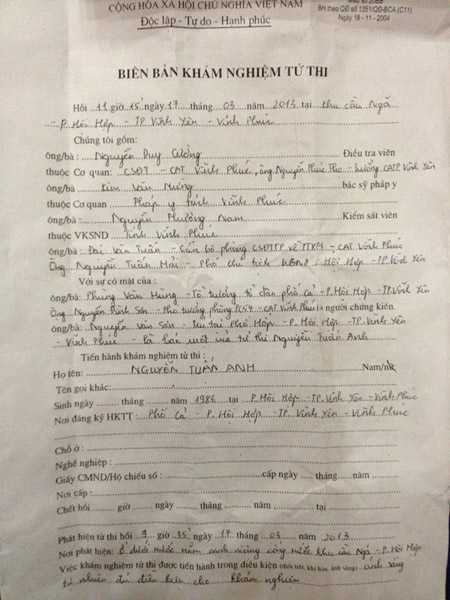 CỘNG HÒA XÃ HỘI CHỦ NGHĨA VIỆT NAM
Độc lập - Tự do - Hạnh phúc
BH theo QĐ số 1351/QĐ-BCA (C11)
Ngày 18 - 11 - 2004
BIÊN BẢN KHÁM NGHIỆM TỬ THI
Hồi 11 giờ 15' ngày 17 tháng 03 năm 2013 tại khu cầu Ngã
- P. Hội Hợp - TP Vĩnh Yên - Vĩnh Phúc
Chúng tôi gồm:
ông/bà: Nguyễn Duy Cường Điều tra viên
thuộc Cơ quan: CSĐT - CAT Vĩnh Phúc, ông Nguyễn Phúc Thọ - trưởng CATP Vĩnh Yên
ông/bà: Kim Văn bác sỹ pháp y
thuộc Cơ quan: Pháp y tỉnh Vĩnh Phúc
ông/bà: Nguyễn Phương Nam Kiểm sát viên
thuộc VKSND Tỉnh Vĩnh Phúc
ông/bà: Văn Tuấn - Cán bộ phòng CSĐTTP về TTXH - CAT Vĩnh Phúc
Ông Nguyễn Tuấn Hải - Phó chủ tịch UBND P. Hội Hợp - TP Vĩnh Yên
Với sự có mặt của:
ông/bà: Phùng Văn Hùng - Tổ trưởng tổ dân phố cả - P. Hội Hợp - TP. Vĩnh Yên
Ông Nguyễn Đình Sơn - Phó trưởng phòng PC54 - CAT Vĩnh Phúc là người chứng kiến.
ông/bà: Nguyễn Văn Sơn - Phố Hợp - P. Hội Hợp - TP. Vĩnh Yên
- Vĩnh Phúc - là tử thi Nguyễn Tuấn Anh
Tiến hành khám nghiệm tử thi:
Họ tên: NGUYỄN TUẤN ANH Nam/nữ
Tên gọi khác:
Sinh ngày tháng năm 1986 tại P. Hội Hợp - TP. Vĩnh Yên - Vĩnh Phúc
Nơi đăng ký HKTT: Phố Cả - P. Hội Hợp - TP. Vĩnh Yên - Vĩnh Phúc
Chỗ ở:
Nghề nghiệp:
Giấy CMND/Hộ chiếu số: cấp ngày tháng năm
Nơi cấp:
Chết hồi giờ ngày tháng năm tại
Phát hiện tử thi hồi 9 giờ 35' ngày 17 tháng 03 năm 2013
Nơi phát hiện: Ở dưới nước cống nước khu cầu Ngã, - P. Hội Hợp
Việc khám nghiệm tử thi được tiến hành trong điều kiện (thời tiết, khí hậu, ánh sáng) ánh sáng
tự nhiên đủ điều kiện cho khám nghiệm